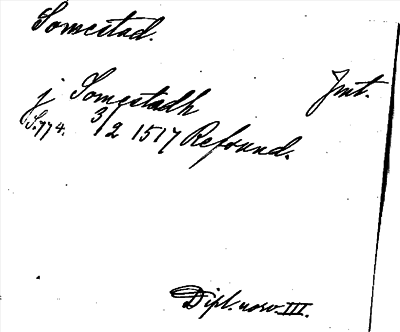 Somestad.
j Somestadh Jmt.
(S.774. 3/2 1517 Refsund.
Dipl. norv. III.